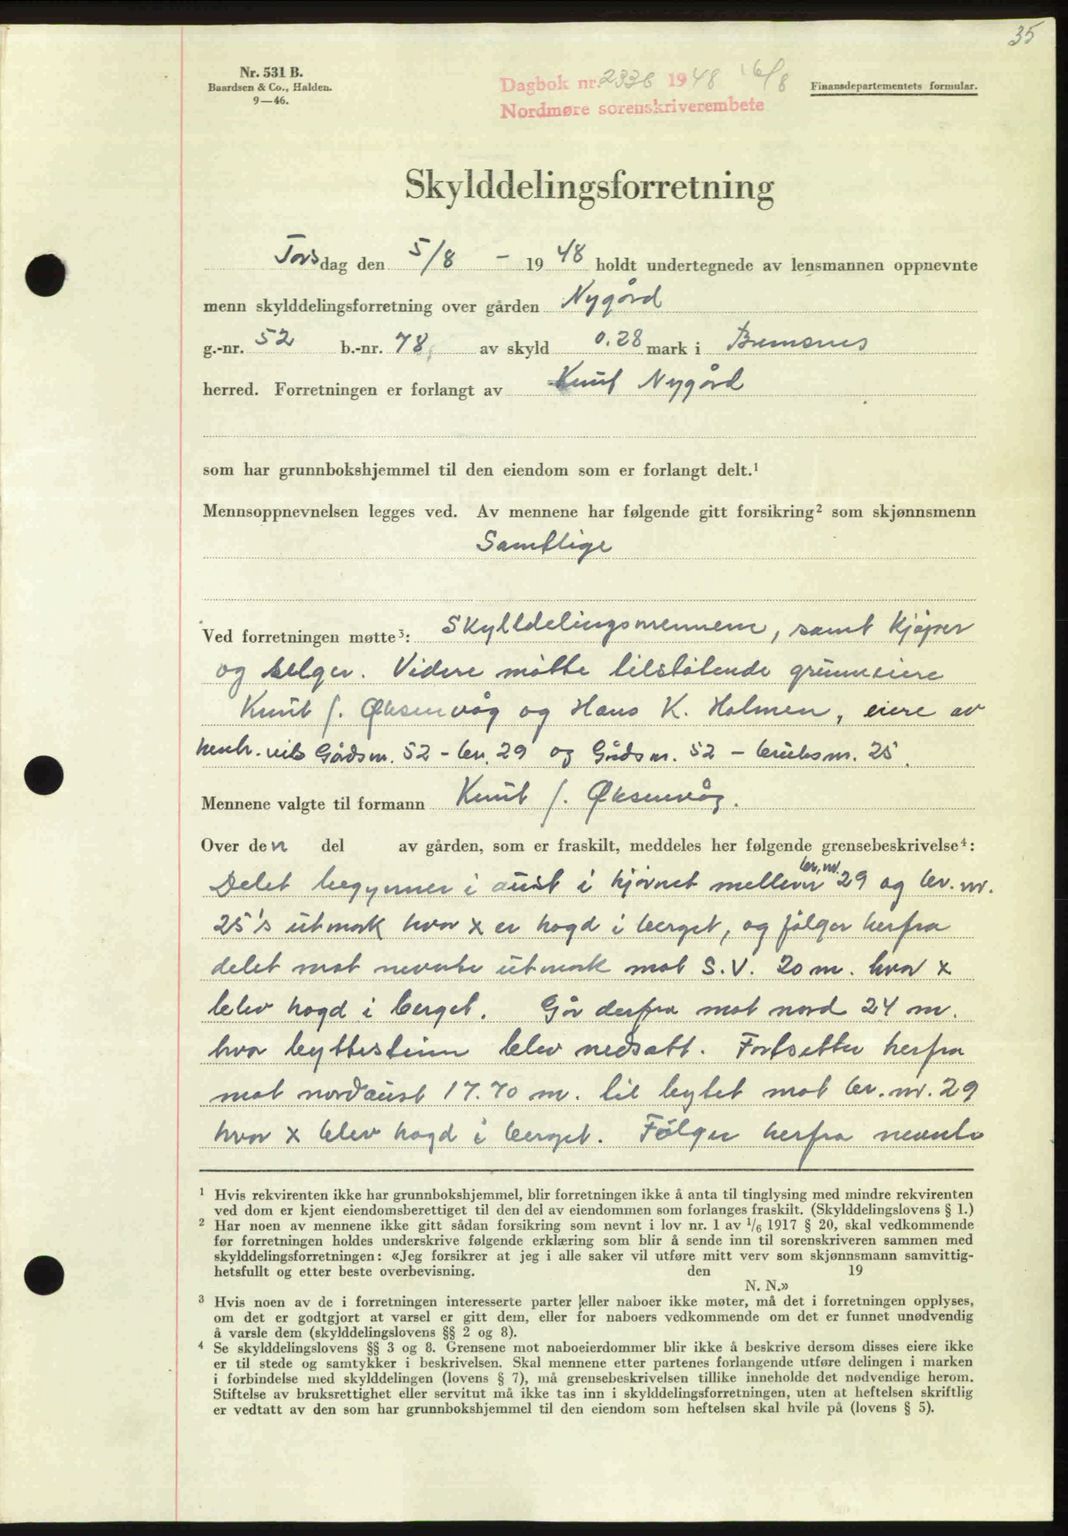 35
Nr. 531 B.
Baardsen & Co., Halden.
9—46.
Dagbok nr. 2336 1948 16/8
Nordmøre sorenskriverembete
Finansdepartementets formular.
Skylddelingsforretning
Torsdag den 5/8 - 1948 holdt undertegnede av lensmannen oppnevnte
menn skylddelingsforretning over gården Nygård
g.-nr. 52 b.-nr. 78, av skyld 0.28 mark i Bremsnes
herred. Forretningen er forlangt av Knut Nygård
som har grunnbokshjemmel til den eiendom som er forlangt delt.¹
Mennsoppnevnelsen legges ved. Av mennene har følgende gitt forsikring² som skjønnsmenn
Samtlige
Ved forretningen møtte³: Skylldelingsmennene, samt kjøper
og selger. Videre møtte tilstøtende grunneiere
Knut J. Øksenvåg og Hans K. Holmen, eiere av
henh. vis Gårdsnr. 52 - br. 29 og Gårdsnr. 52 - bruksnr. 25.
Mennene valgte til formann Knut J. Øksenvåg.
Over den del av gården, som er fraskilt, meddeles her følgende grensebeskrivelse⁴:
Delet begynner i aust i hjørnet mellem br.nr. 29 og br. nr.
25's utmark hvor x er hogd i berget, og følger herfra
delet mot nevnte utmark mot S.V. 20 m. hvor x
blev hogd i berget. Går derfra mot nord 24 m.
hvor byttestein blev nedsatt. Fortsetter herfra
mot nordaust 17.70 m. til bytet mot br. nr. 29
hvor x blev hogd i berget. Følger herfra nevnte
¹ Hvis rekvirenten ikke har grunnbokshjemmel, blir forretningen ikke å anta til tinglysing med mindre rekvirenten
ved dom er kjent eiendomsberettiget til den del av eiendommen som forlanges fraskilt. (Skylddelingslovens § 1.)
² Har noen av mennene ikke gitt sådan forsikring som nevnt i lov nr. 1 av 1/6 1917 § 20, skal vedkommende
før forretningen holdes underskrive følgende erklæring som blir å sende inn til sorenskriveren sammen med
skylddelingsforretningen: «Jeg forsikrer at jeg i alle saker vil utføre mitt verv som skjønnsmann samvittig-
hetsfullt og etter beste overbevisning. den 19
N. N.»
³ Hvis noen av de i forretningen interesserte parter eller naboer ikke møter, må det i forretningen opplyses,
om det er godtgjort at varsel er gitt dem, eller for naboers vedkommende om det er funnet unødvendig
å varsle dem (skylddelingslovens §§ 2 og 8).
⁴ Se skylddelingslovens §§ 3 og 8. Grensene mot naboeierdommer blir ikke å beskrive dersom disses eiere ikke
er til stede og samtykker i beskrivelsen. Skal mennene etter partenes forlangende utføre delingen i marken
i forbindelse med skylddelingen (lovens § 7), må grensebeskrivelsen tillike inneholde det nødvendige herom.
Stiftelse av bruksrettighet eller servitut må ikke tas inn i skylddelingsforretningen, uten at heftelsen skriftlig
er vedtatt av den som har grunnbokshjemmel til den eiendom som heftelsen skal hvile på (lovens § 5).